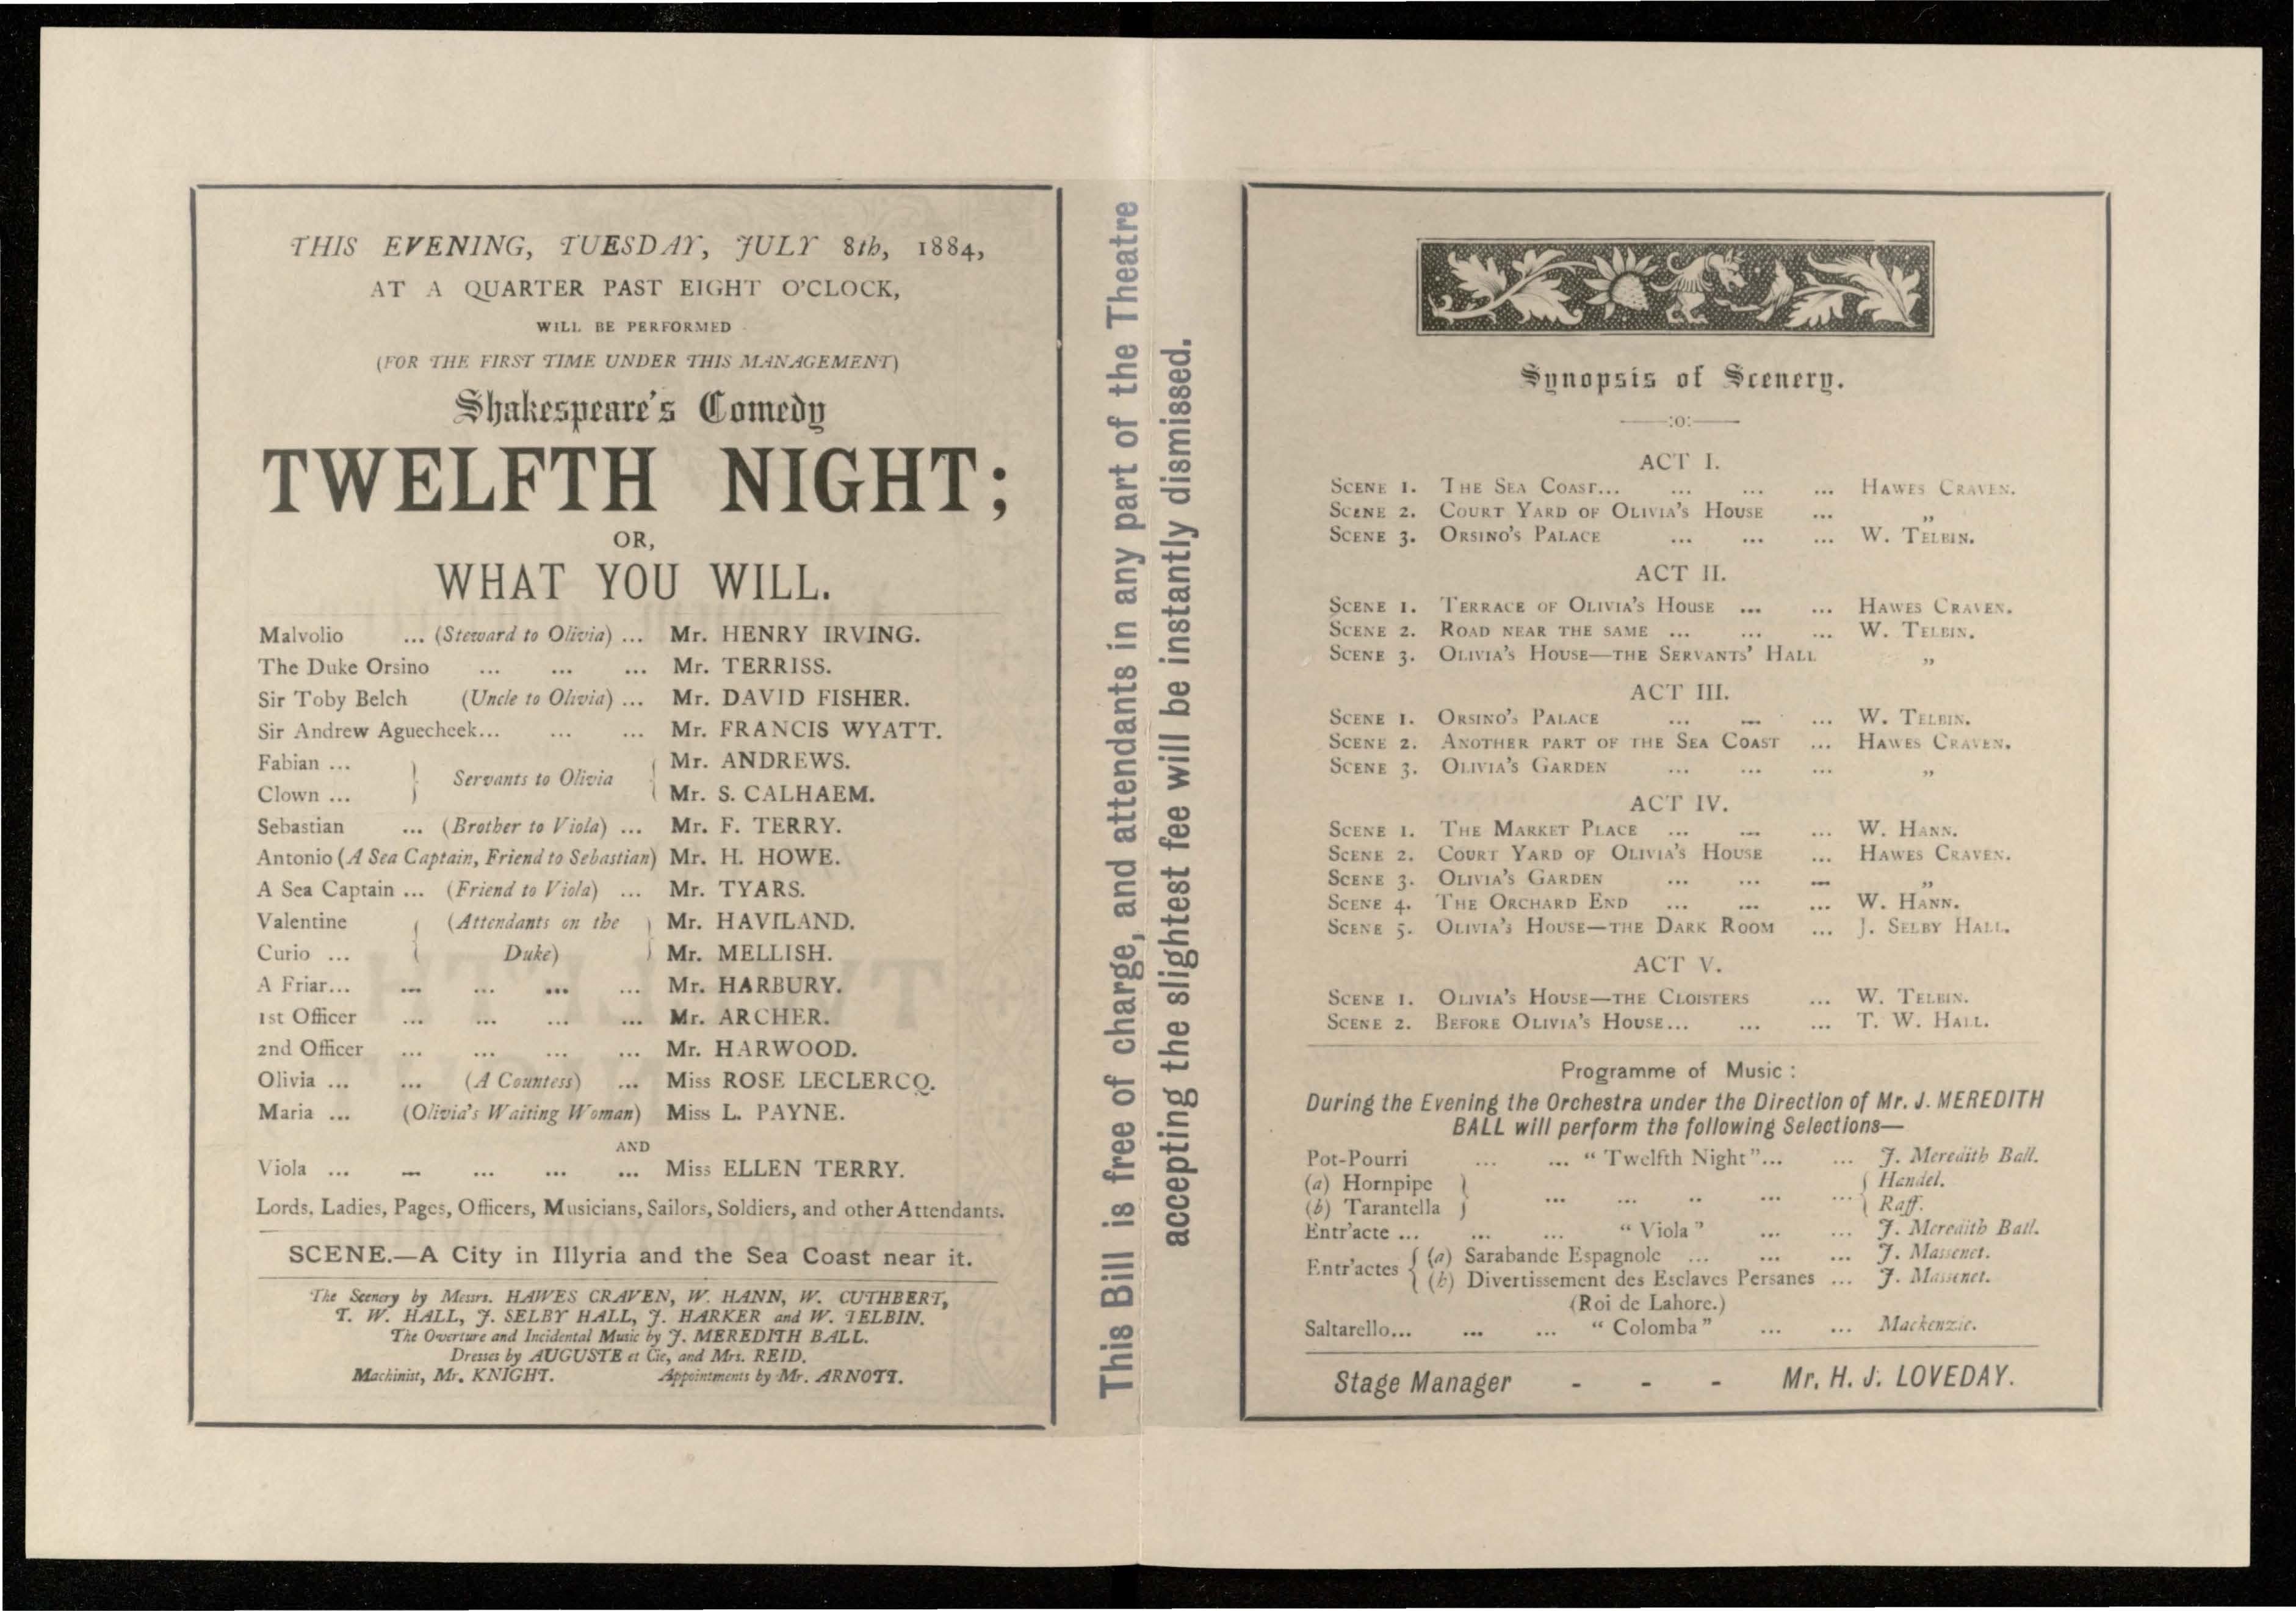 THIS EVENING, TUESDAY, JULY 8th, 1884,
AT A QUARTER PAST EIGHT O'CLOCK,
WILL BE PERFORMED
(FOR THE FIRST TIME UNDER THIS MANAGEMENT)
Shakespeare's Comedy
TWELFTH NIGHT;
OR,
WHAT YOU WILL.
Malvolio ... (Steward to Olivia) ... Mr. HENRY IRVING.
The Duke Orsino ... ... ... Mr. TERRISS.
Sir Toby Belch (Uncle to Olivia) ... Mr. DAVID FISHER.
Sir Andrew Aguecheek... ... ... Mr. FRANCIS WYATT.
Fabian ... Mr. ANDREWS.
Servants to Olivia
Clown ... Mr. S. CALHAEM.
Sebastian ... (Brother to Viola) ... Mr. F. TERRY.
Antonio (A Sea Captain, Friend to Sebastian) Mr. H. HOWE.
A Sea Captain ... (Friend to Viola) ... Mr. TYARS.
Valentine (Attendants on the Mr. HAVILAND.
Curio ... Duke) Mr. MELLISH.
A Friar... ... ... ... ... Mr. HARBURY.
1st Officer ... ... ... ... Mr. ARCHER.
2nd Officer ... ... ... ... Mr. HARWOOD.
Olivia ... ... (A Countess) ... Miss ROSE LECLERCQ.
Maria ... (Olivia's Waiting Woman) Miss L. PAYNE.
AND
Viola ... ... ... ... ... Miss ELLEN TERRY.
Lords, Ladies, Pages, Officers, Musicians, Sailors, Soldiers, and other Attendants.
SCENE.—A City in Illyria and the Sea Coast near it.
The Scenery by Messrs. HAWES CRAVEN, W. HANN, W. CUTHBERT,
T. W. HALL, J. SELBY HALL, J. HARKER and W. TELBIN.
The Overture and Incidental Music by J. MEREDITH BALL.
Dresses by AUGUSTE et Cie, and Mrs. REID.
Machinist, Mr. KNIGHT. Appointments by Mr. ARNOTT.
This Bill is free of charge, and attendants in any part of the Theatre
accepting the slightest fee will be instantly dismissed.
Synopsis of Scenery.
:o:
ACT I.
SCENE 1. THE SEA COAST... ... ... ... HAWES CRAVEN.
SCENE 2. COURT YARD OF OLIVIA'S HOUSE ... „
SCENE 3. ORSINO'S PALACE ... ... ... W. TELBIN.
ACT II.
SCENE 1. TERRACE OF OLIVIA'S HOUSE ... ... HAWES CRAVEN.
SCENE 2. ROAD NEAR THE SAME ... ... ... W. TELBIN.
SCENE 3. OLIVIA'S HOUSE—THE SERVANTS' HALL „
ACT III.
SCENE 1. ORSINO'S PALACE ... ... ... W. TELBIN.
SCENE 2. ANOTHER PART OF THE SEA COAST ... HAWES CRAVEN.
SCENE 3. OLIVIA'S GARDEN ... ... ... „
ACT IV.
SCENE 1. THE MARKET PLACE ... ... ... W. HANN.
SCENE 2. COURT YARD OF OLIVIA'S HOUSE ... HAWES CRAVEN.
SCENE 3. OLIVIA'S GARDEN ... ... ... „
SCENE 4. THE ORCHARD END ... ... ... W. HANN.
SCENE 5. OLIVIA'S HOUSE—THE DARK ROOM ... J. SELBY HALL.
ACT V.
SCENE 1. OLIVIA'S HOUSE—THE CLOISTERS ... W. TELBIN.
SCENE 2. BEFORE OLIVIA'S HOUSE... ... ... T. W. HALL.
Programme of Music :
During the Evening the Orchestra under the Direction of Mr. J. MEREDITH
BALL will perform the following Selections—
Pot-Pourri ... ... "Twelfth Night"... ... J. Meredith Ball.
(a) Hornpipe Handel.
... ... .. ... ...
(b) Tarantella Raff.
Entr'acte ... ... ... "Viola" ... ... J. Meredith Ball.
(a) Sarabande Espagnole ... ... ... J. Massenet.
Entr'actes
(b) Divertissement des Esclaves Persanes ... J. Massenet.
(Roi de Lahore.)
Saltarello... ... ... "Colomba" ... ... Mackenzie.
Stage Manager - - - Mr. H. J. LOVEDAY.